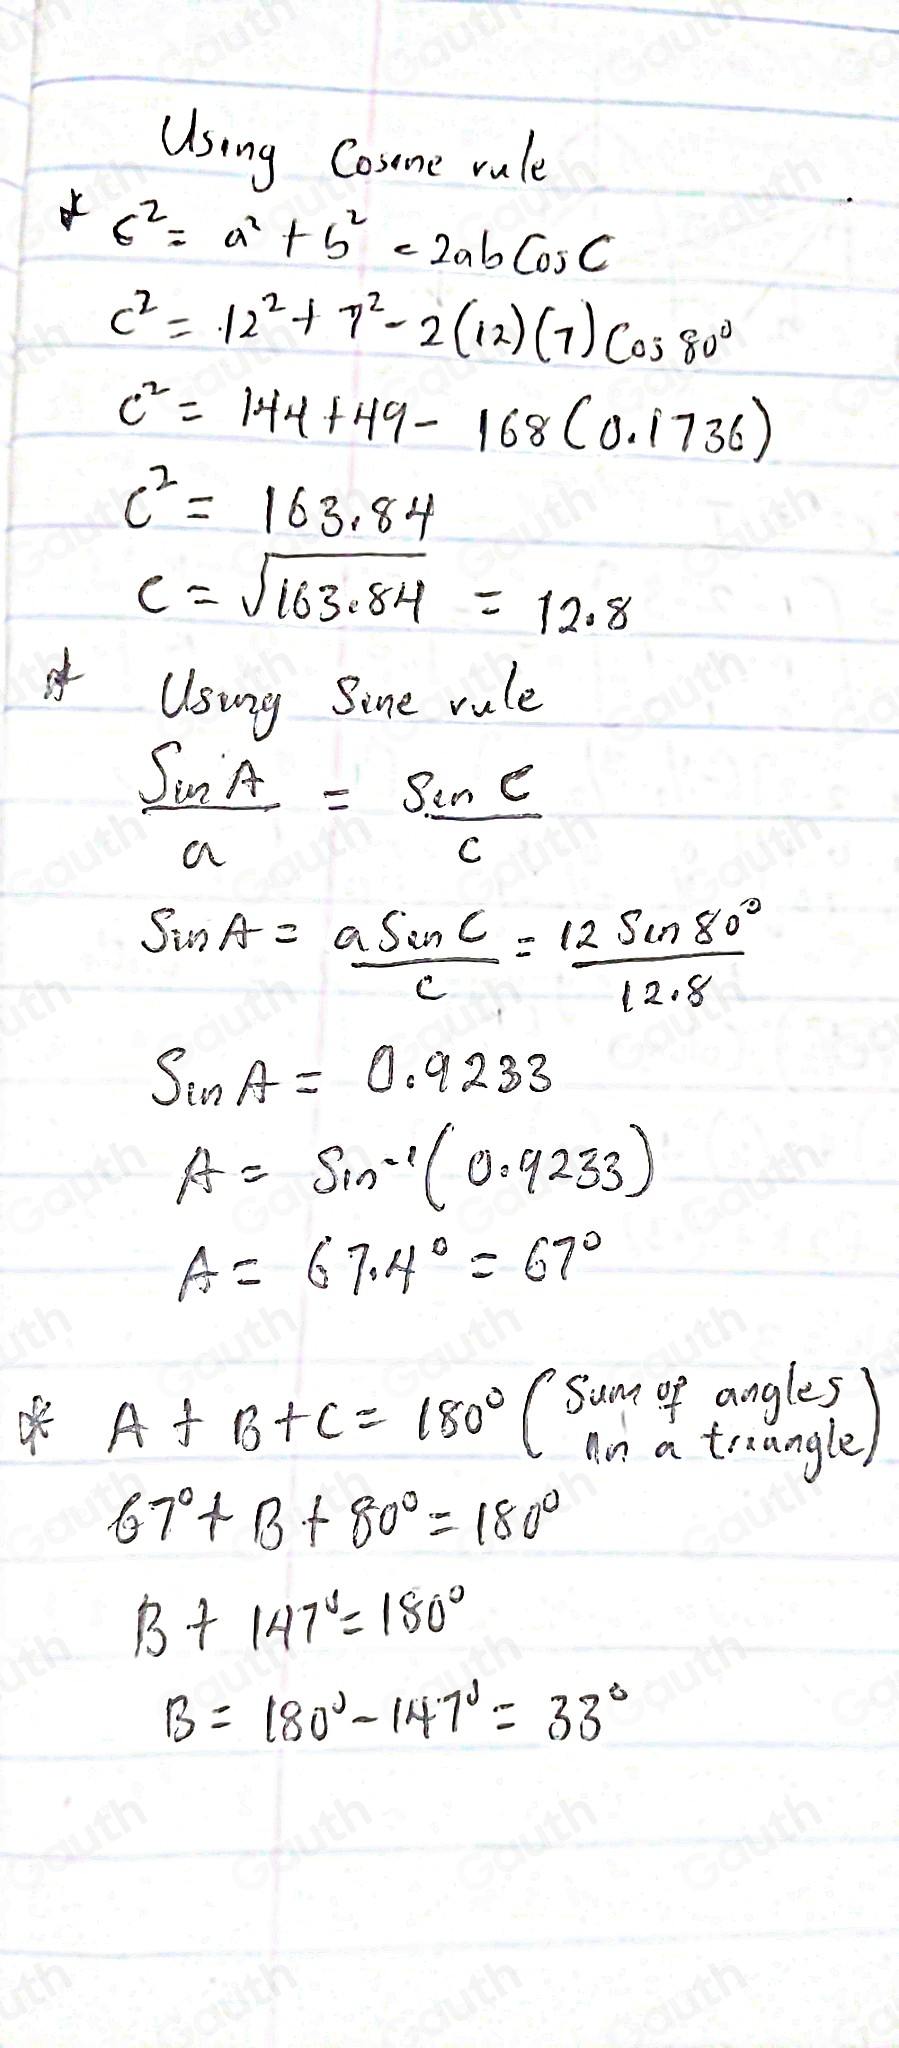 Using Cosine rule
* c² = a² + b² - 2ab Cos C
c² = 12² + 7² - 2(12)(7) Cos 80°
c² = 144 + 49 - 168(0.1736)
c² = 163.84
c = √163.84 = 12.8
* Using Sine rule
Sin A / a = Sin C / c
Sin A = a Sin C / c = 12 Sin 80° / 12.8
Sin A = 0.9233
A = Sin⁻¹(0.9233)
A = 67.4° = 67°
* A + B + C = 180° (Sum of angles in a triangle)
67° + B + 80° = 180°
B + 147° = 180°
B = 180° - 147° = 33°